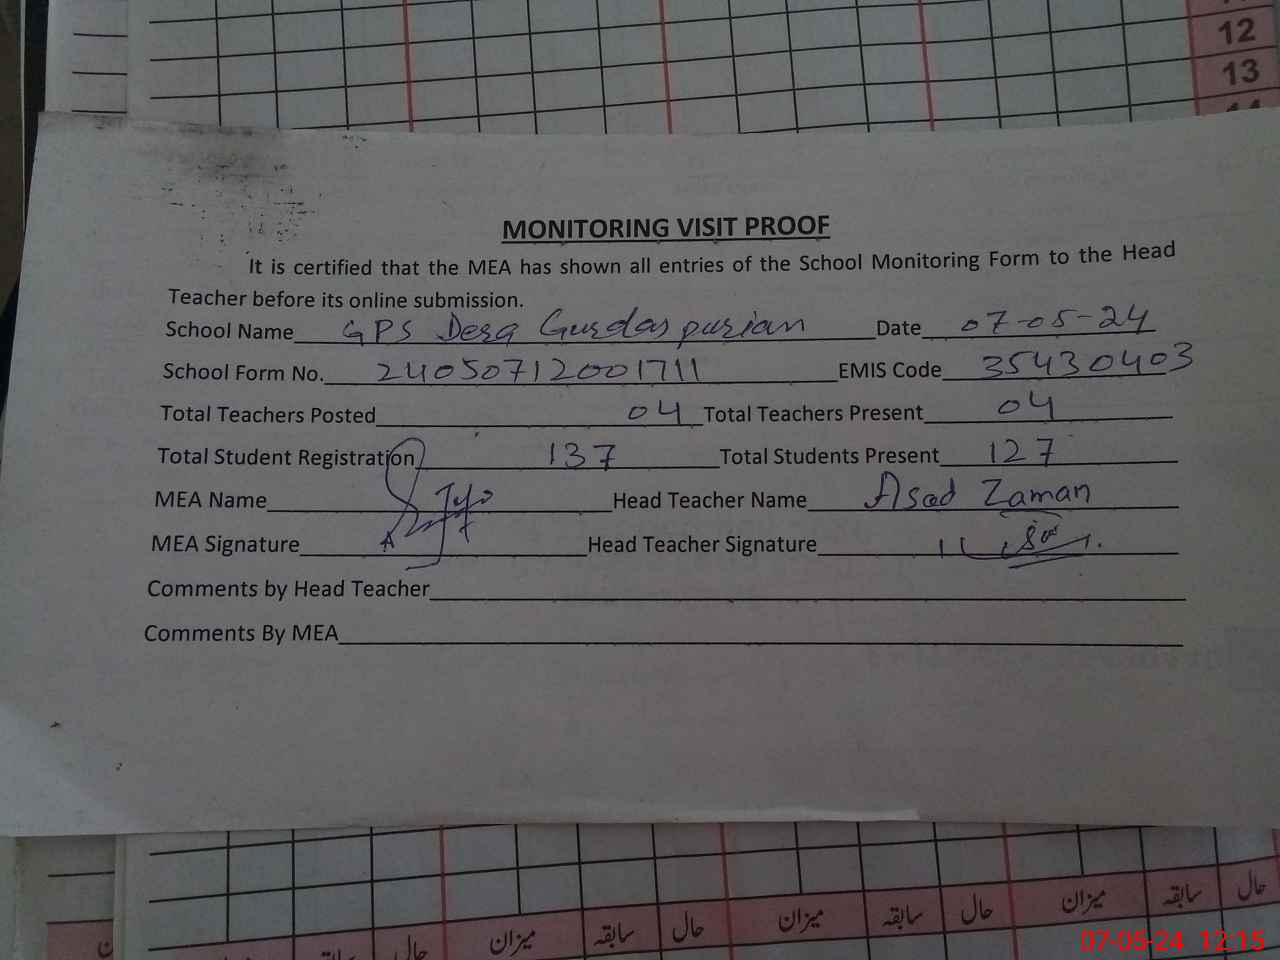 12
13
MONITORING VISIT PROOF
It is certified that the MEA has shown all entries of the School Monitoring Form to the Head
Teacher before its online submission.
School Name GPS Dera Gurdaspurian Date 07-05-24
School Form No. 240507120001711 EMIS Code 35430403
Total Teachers Posted 04 Total Teachers Present 04
Total Student Registration 137 Total Students Present 127
MEA Name Head Teacher Name Asad Zaman
MEA Signature Head Teacher Signature
Comments by Head Teacher
Comments By MEA
حال سابقہ میزان حال سابقہ میزان حال سابقہ میزان حال سابقہ
07-05-24 12:15